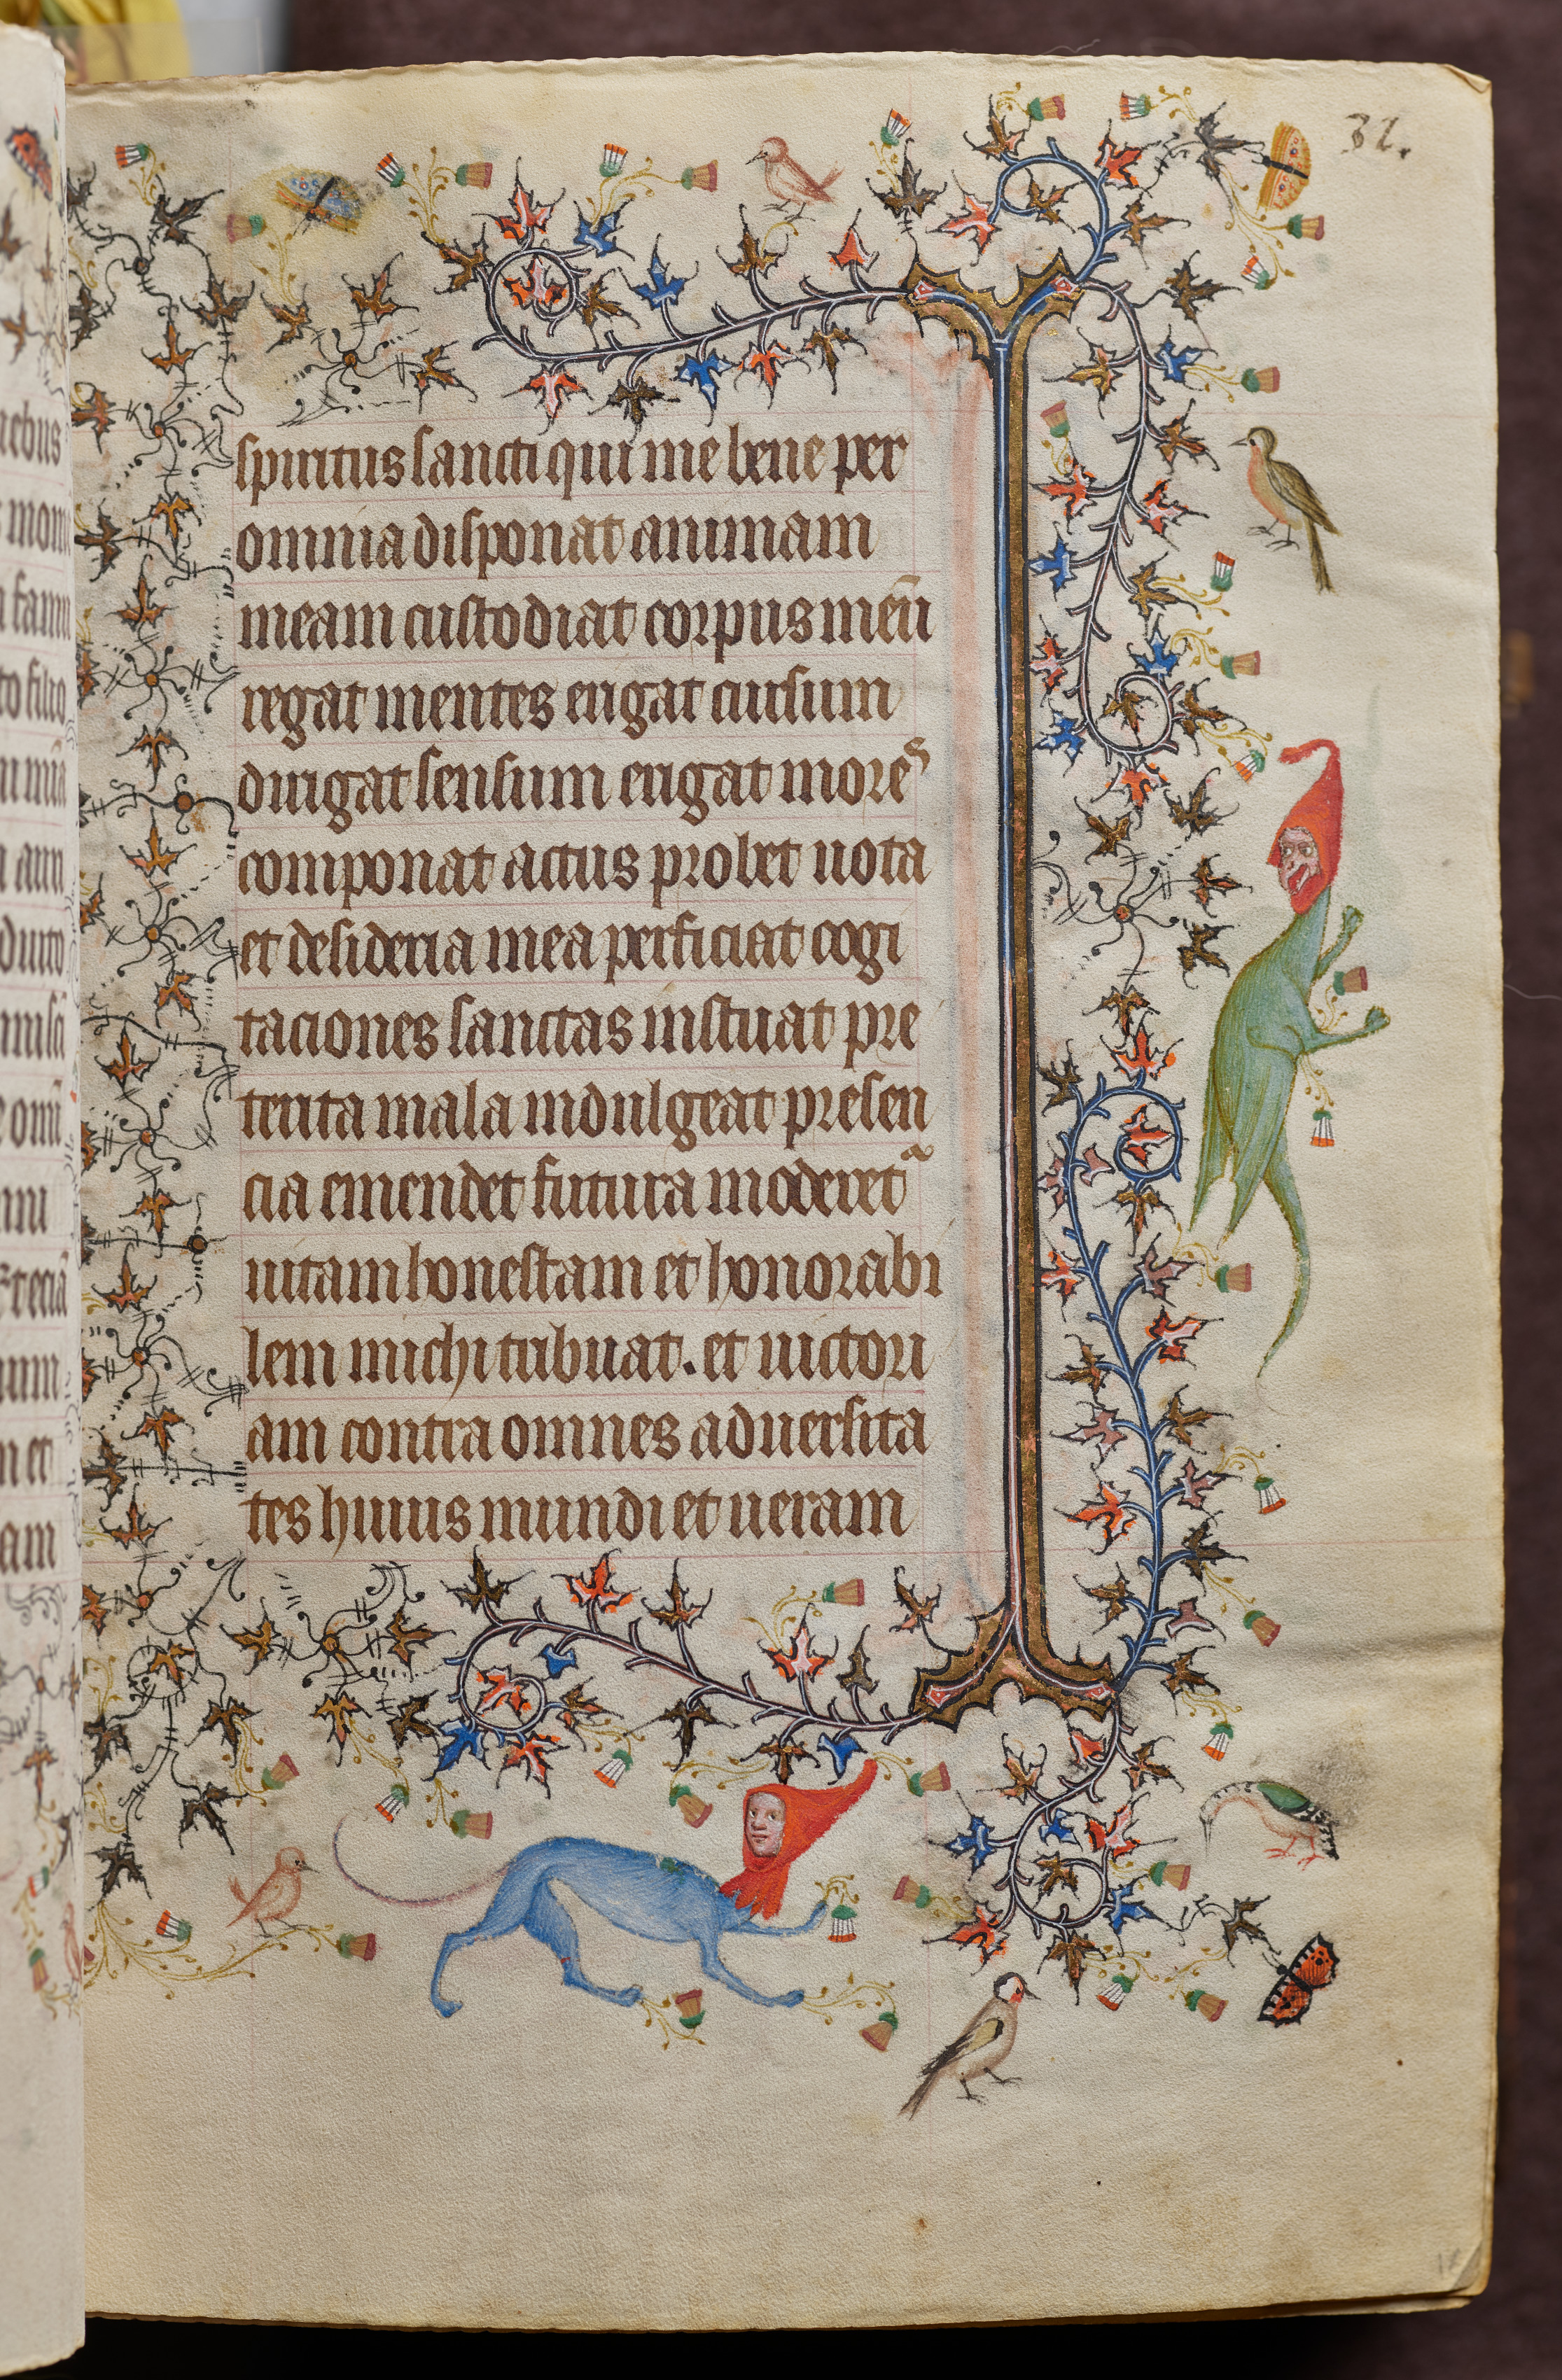 32.
spiritus sancti qui me bene per
omnia disponat animam
meam custodiat corpus meū
regat mentes erigat cursum
dirigat sensum erigat mores
componat actus probet uota
et desideria mea perficiat cogi
taciones sanctas instuat pre
terita mala indulgeat presen
cia emendet futura moderet᷑
uitam honestam et honorabi
lem michi tribuat. et uictori
am contra omnes aduersita
tes huius mundi et ueram